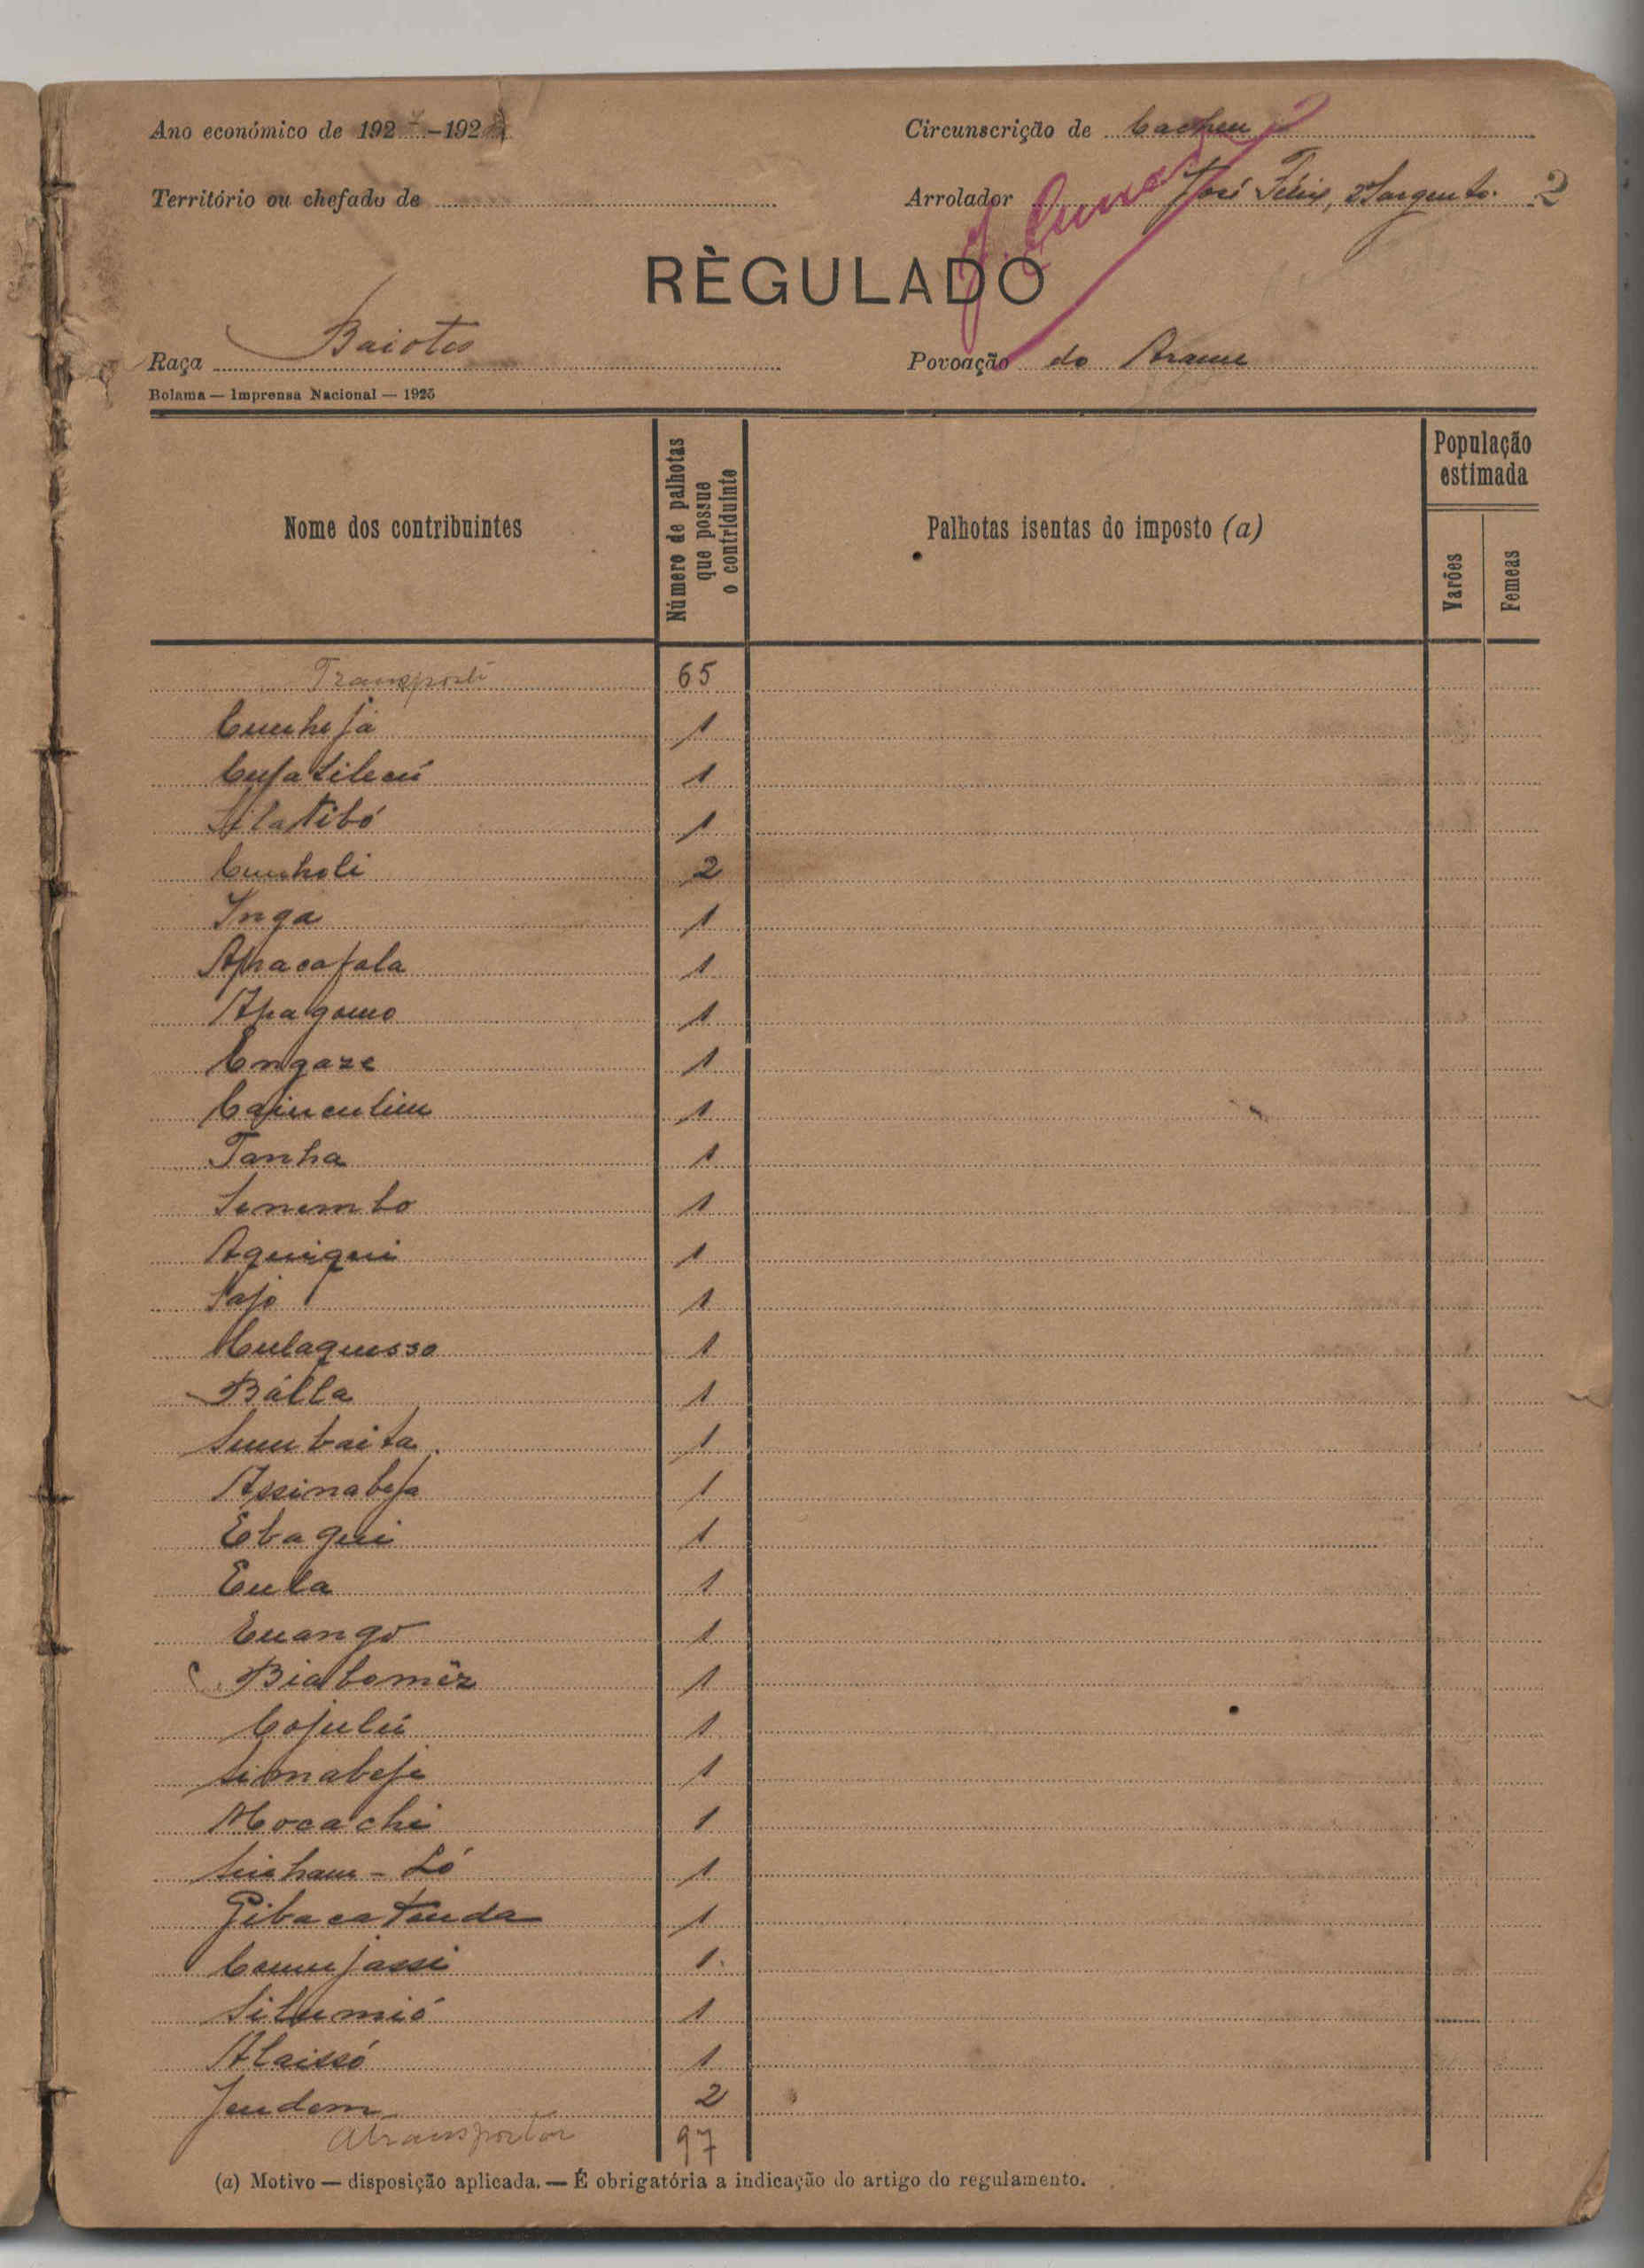 Ano económico de 192 -192
Circunscrição de Cacheu
Território ou chefado de
Arrolador José Félix, 2º Sargento. 2
RÈGULADO
Raça Baiotes
Povoação do Arame
Bolama — Imprensa Nacional — 1925
Nome dos contribuintes
Número de palhotas que possue o contriduinte
Palhotas isentas do imposto (a)
População estimada
Varões
Femeas
Transporte 65
Cunheja 1
Cufatilecú 1
1
Cunholi 2
Inga 1
Apacafala 1
Apagomo 1
Engaze 1
1
Tanha 1
Senembo 1
Aquiqui 1
Sajo 1
Culaquesso 1
Bálla 1
Sumbaita 1
Assinabeja 1
Ebagui 1
Eula 1
Euango 1
Biabomêz 1
Cojulú 1
Simabeji 1
Mocachi 1
1
Gibacatenda 1
1
Silumió 1
Alaissó 1
Jendem 2
A transportar 97
(a) Motivo — disposição aplicada. — É obrigatória a indicação do artigo do regulamento.